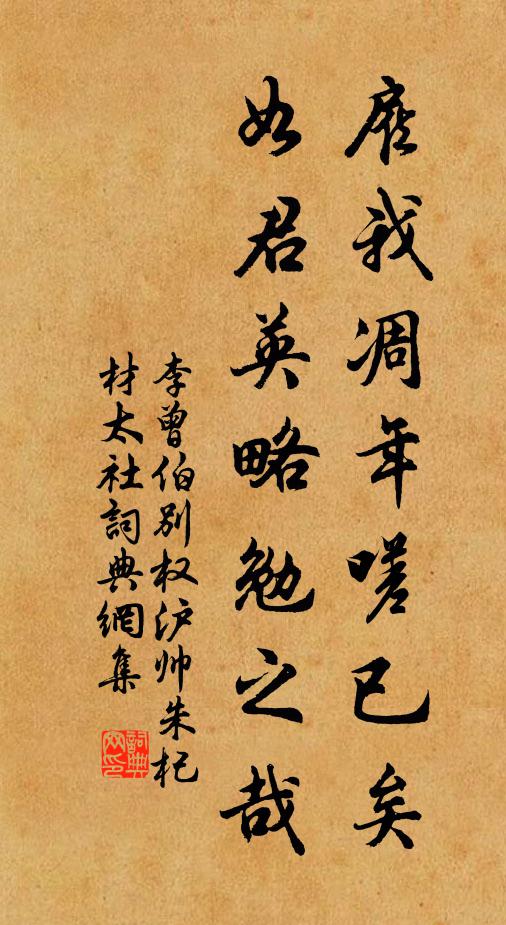 顧我凋年嗟已矣
如君英略勉之哉
李曾伯别权沪帅朱杞
材太社詞典網集
詞典
网印